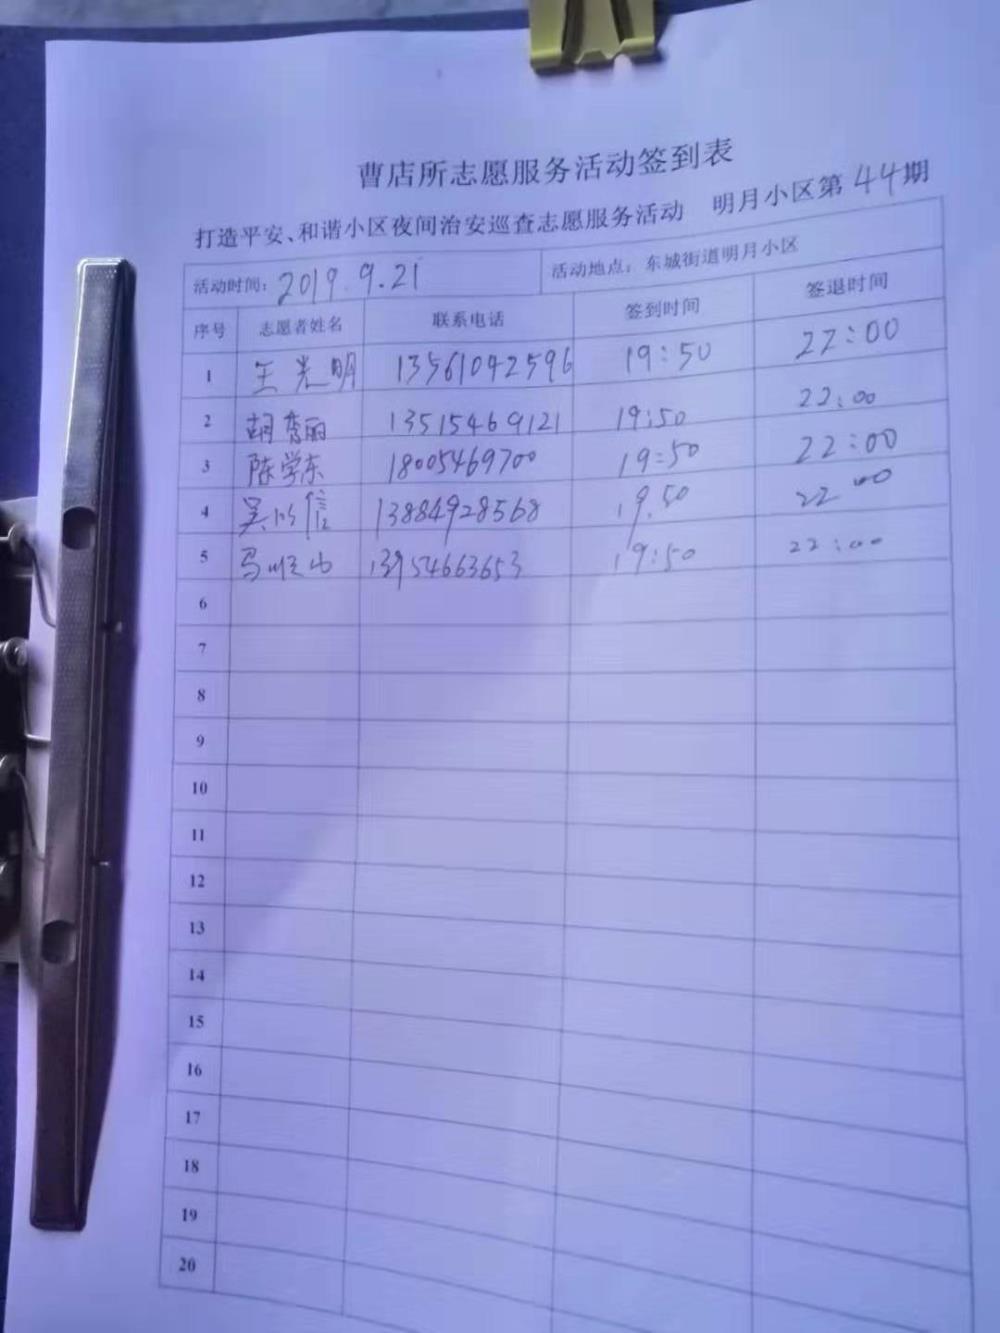 曹店所志愿服务活动签到表
打造平安、和谐小区夜间治安巡查志愿服务活动 明月小区第44期
活动时间：2019.9.21 活动地点：东城街道明月小区
序号 志愿者姓名 联系电话 签到时间 签退时间
1 王光明 13561042596 19:50 22:00
2 胡秀丽 13515469121 19:50 22:00
3 陈学东 18005469700 19:50 22:00
4 吴 信 13884928568 19.50 22 00
5 马 13954663653 19:50 22:00
6
7
8
9
10
11
12
13
14
15
16
17
18
19
20